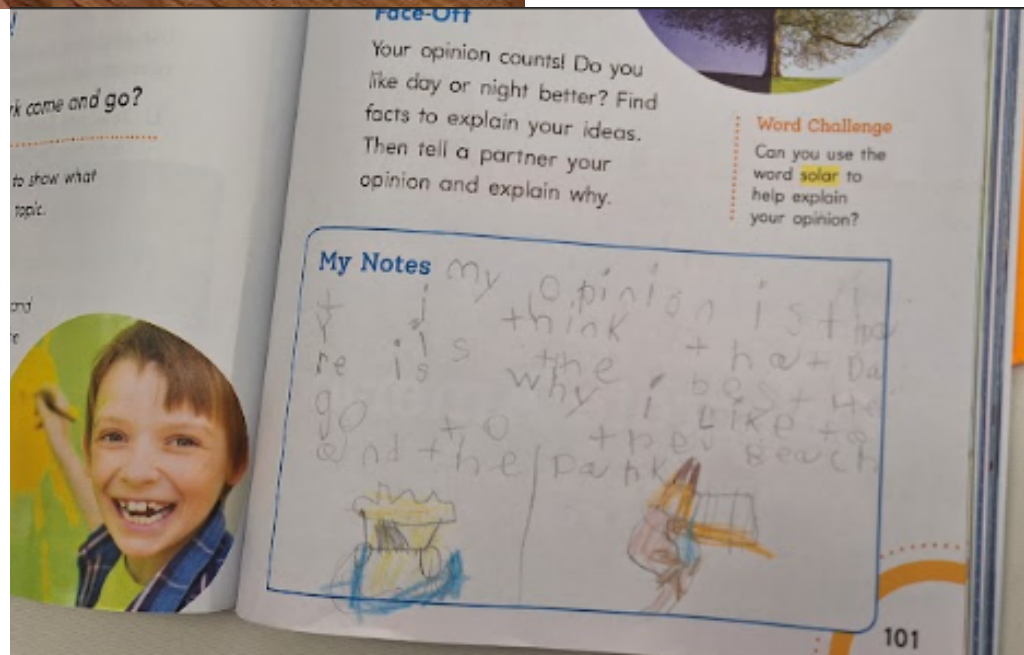 !
rk come and go?
to show what
topic.
and
e
Face-Off
Your opinion counts! Do you
like day or night better? Find
facts to explain your ideas.
Then tell a partner your
opinion and explain why.
Word Challenge
Can you use the
word solar to
help explain
your opinion?
My Notes
My opinion is tha
t i think that Da
y is the best He
re is why i Like to
go to the Beach
and the park
101